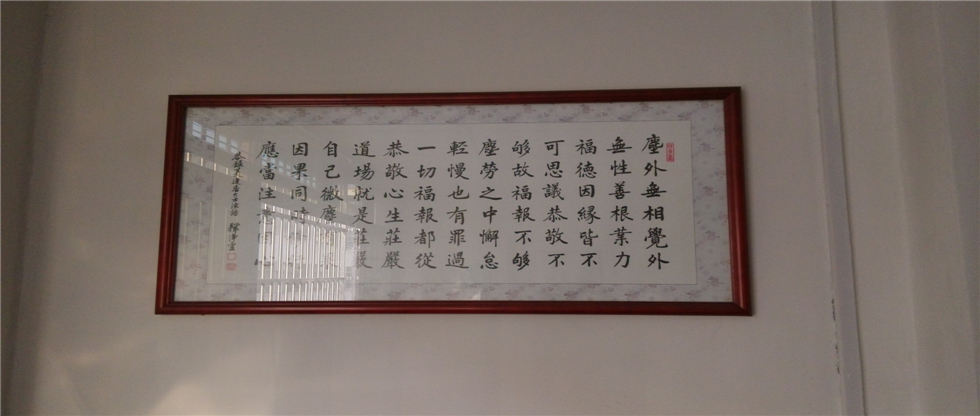 塵外無相覺外
無性善根業力
福德因緣皆不
可思議恭敬不
够故福報不够
塵勞之中懈怠
輕慢也有罪過
一切福報都從
恭敬心生莊嚴
道場就是莊嚴
自己微塵
因果同
應當注意